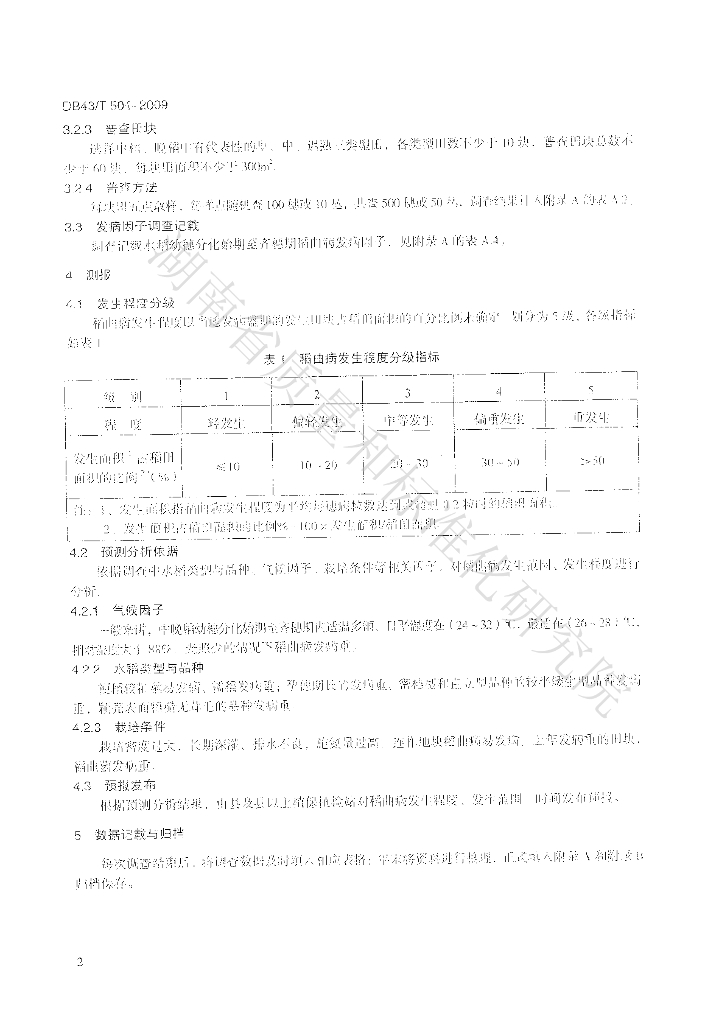 DB43/T 504-2009
3.2.3 普查田块
选择中稻、晚稻中有代表性的早、中、迟熟三类型田，各类型田数不少于10块，普查田块总数不
少于60块，每块田面积不少于300m²。
3.2.4 普查方法
每块田五点取样，每点随机查100穗或10丛，共查500穗或50丛，调查结果计入附录A的表A.2。
3.3 发病因子调查记载
调查记载水稻幼穗分化始期至齐穗期稻曲病发病因子，见附录A的表A.4。
4 测报
4.1 发生程度分级
稻曲病发生程度以 的发生田块占稻田面积的百分比例来确定，划分为5级，各级指标
如表1。
表1 稻曲病发生程度分级指标
级 别 1 2 3 4 5
程 度 轻发生 偏轻发生 中等发生 偏重发生 重发生
发生面积¹⁾占稻田
面积的比例²⁾（%） ≤10 10～20 20～30 30～50 >50
注：1、发生面积指稻曲病发生程度为平均每穗病粒数达到或超过0.2粒时的稻田面积。
2、发生面积占稻田面积的比例%＝100×发生面积/稻田面积
4.2 预测分析依据
依据调查中水稻类型与品种、气候因子、栽培条件等相关因子，对稻曲病发生范围、发生程度进行
分析。
4.2.1 气候因子
一般来讲，中晚稻幼穗分化始期至齐穗期内适温多雨、日平温度在（24～32）℃、最适在（26～28）℃，
相对湿度大于88%、 的情况下稻曲病发病重。
4.2.2 水稻类型与品种
易发病、 发病重；孕穗期长的发病重、密穗型和直立型品种的较 型品种发病
重，颖壳表面粗糙无茸毛的品种发病重。
4.2.3 栽培条件
栽培密度过大、长期深灌、排水不良、施氮量过高、连作地块稻曲病易发病，上年发病重的田块，
稻曲病发病重。
4.3 预报发布
根据预测分析结果，由县及县以上植保植检站对稻曲病发生程度、发生范围、时间发布预报。
5 数据记载与归档
每次调查结束后，将调查数据及时填入相应表格；年末将资料进行整理，正式填入附录A和附录B
归档保存。
湖南省质量和标准化研究院
2